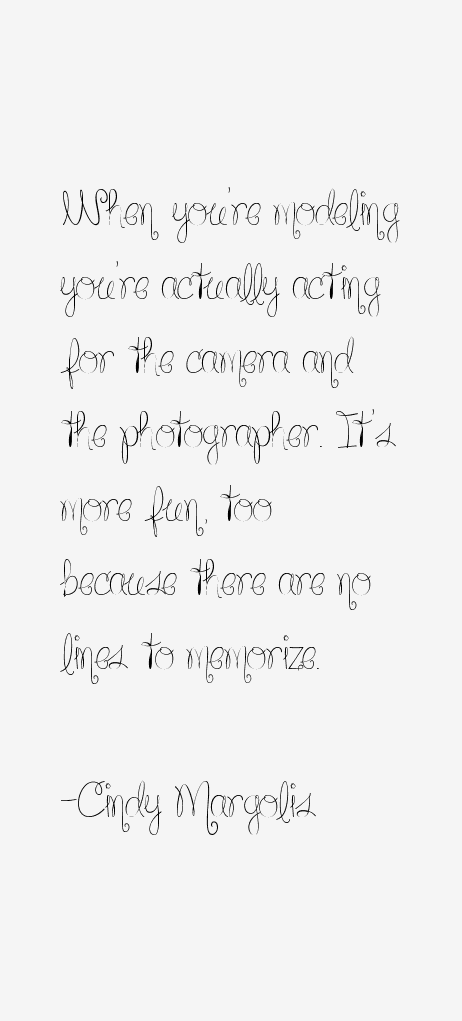 When you're modeling
you're actually acting
for the camera and
the photographer. It's
more fun, too
because there are no
lines to memorize.
-Cindy Margolis